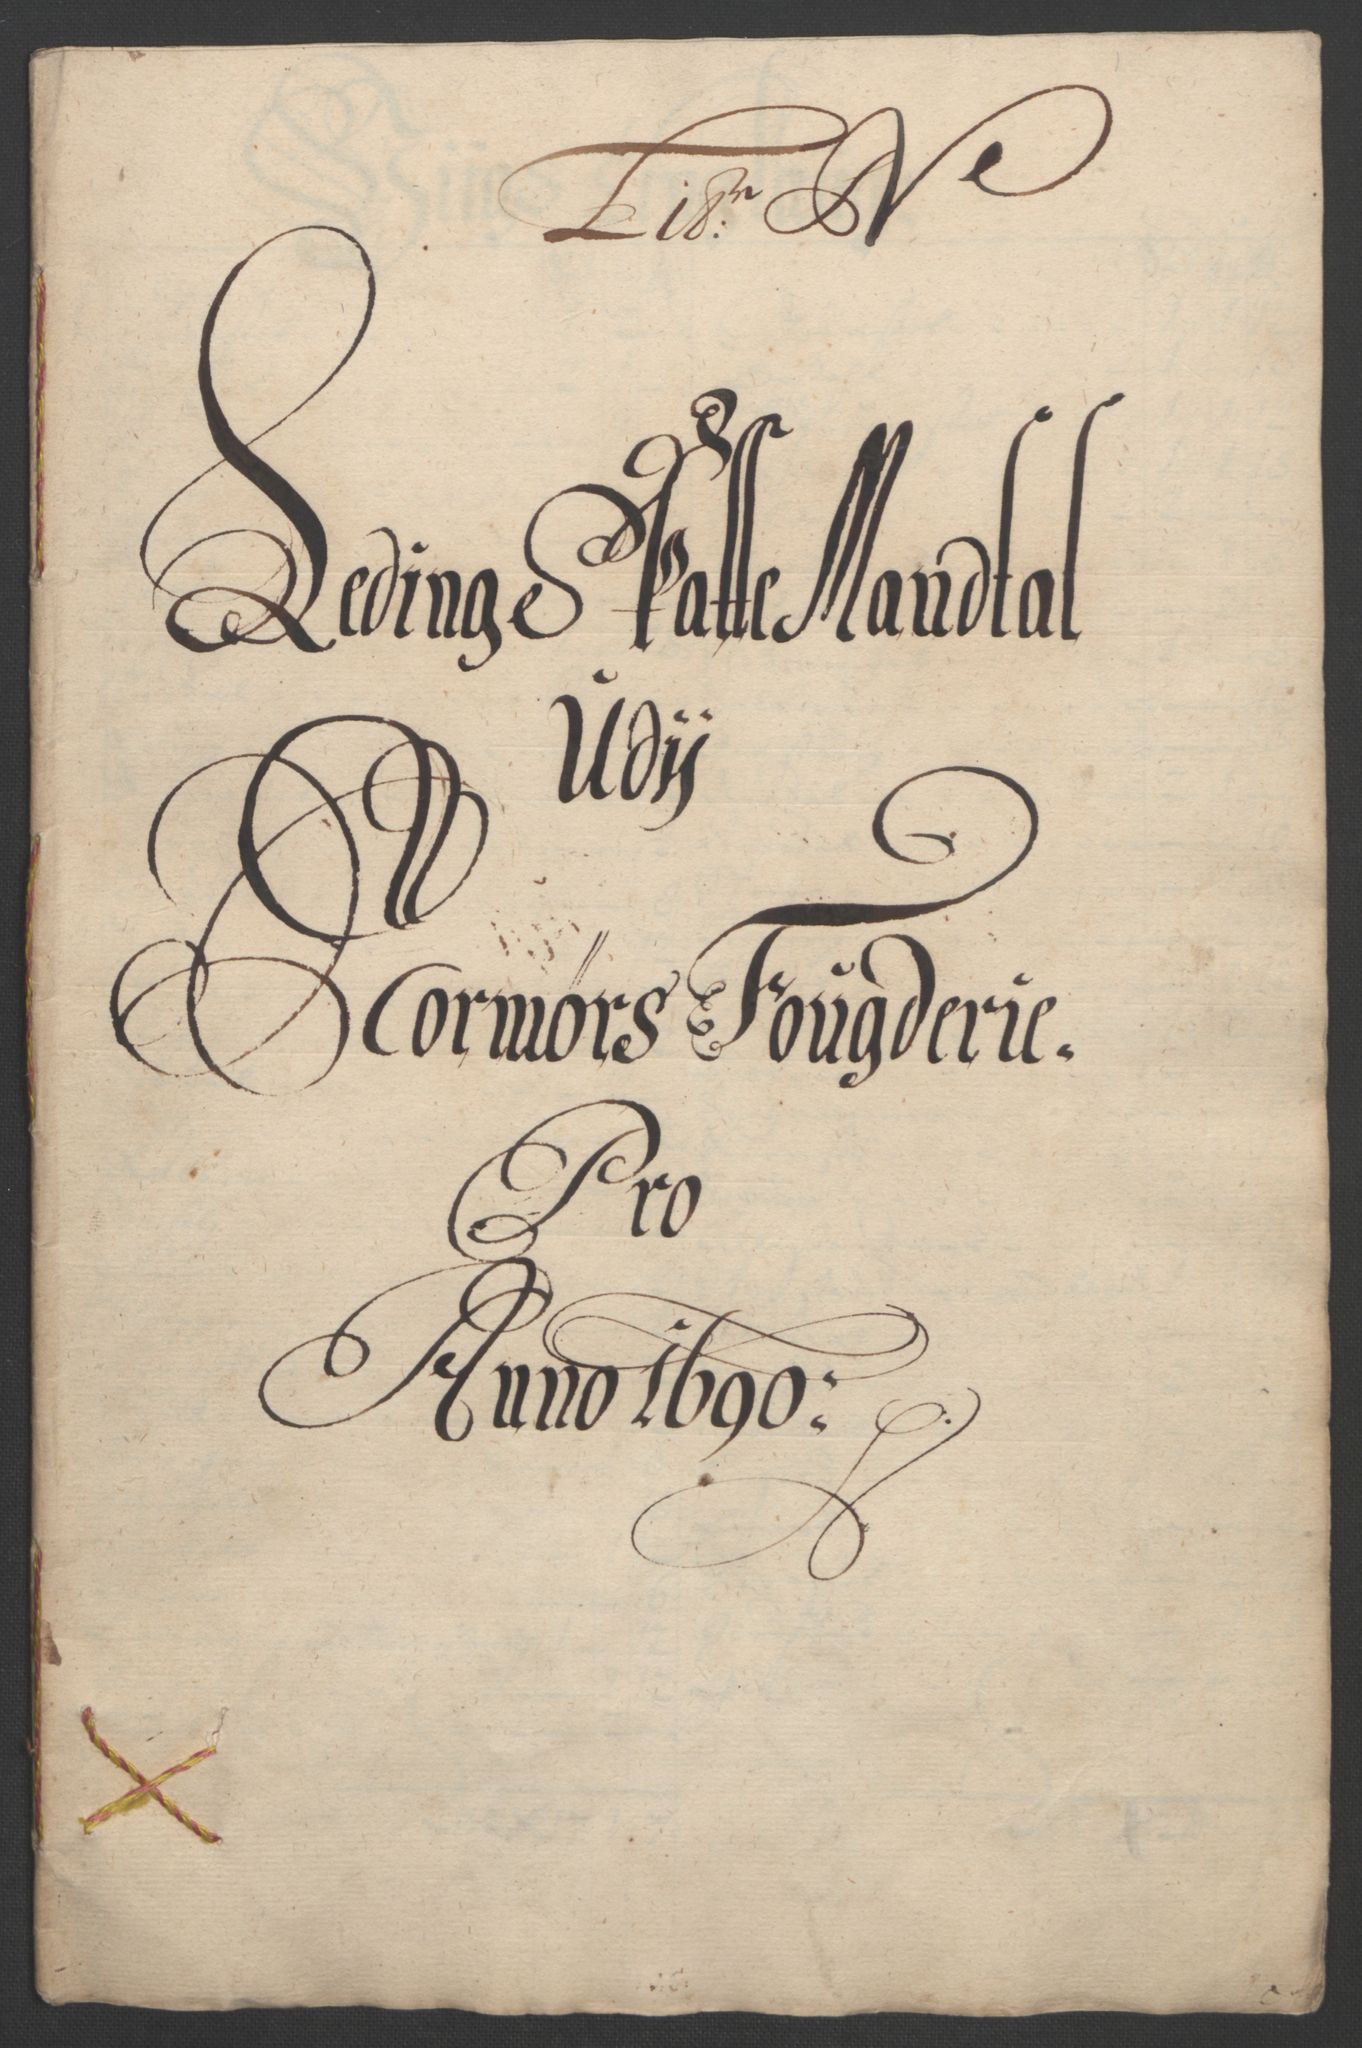 Leding Skatte Mandtal
Udij
Normørs Fougderie.
Pro
Anno 1690: